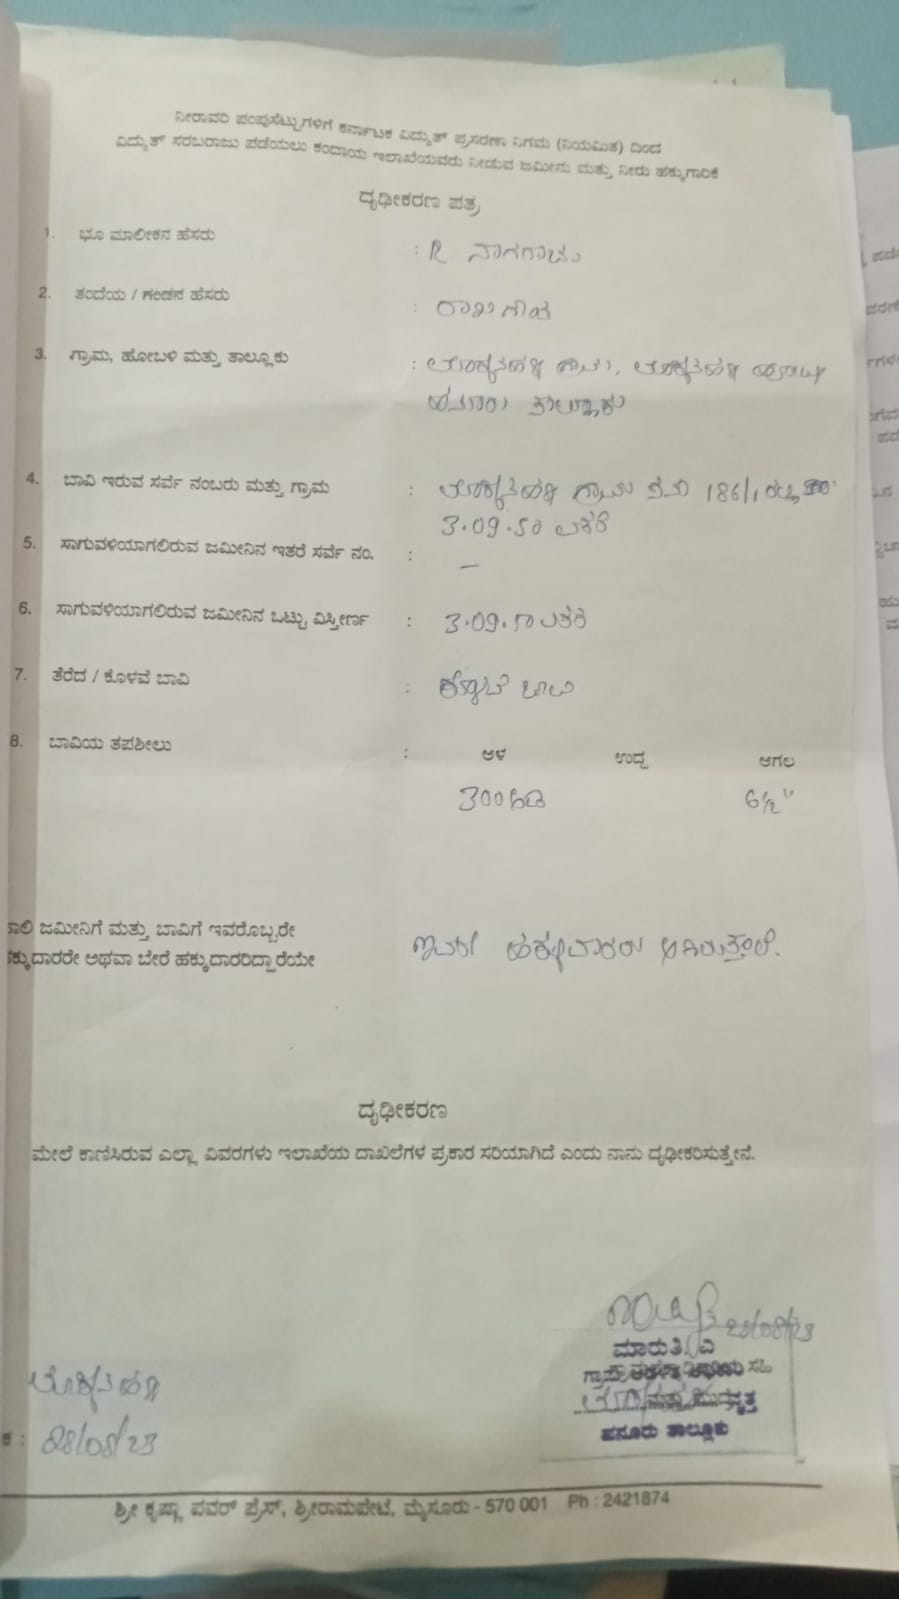 ನೀರಾವರಿ ಪಂಪುಸೆಟ್ಟುಗಳಿಗೆ ಕರ್ನಾಟಕ ವಿದ್ಯುತ್ ಪ್ರಸರಣಾ ನಿಗಮ (ನಿಯಮಿತ) ದಿಂದ
ವಿದ್ಯುತ್ ಸರಬರಾಜು ಪಡೆಯಲು ಕಂದಾಯ ಇಲಾಖೆಯವರು ನೀಡುವ ಜಮೀನು ಮತ್ತು ನೀರು ಹಕ್ಕುಗಾರಿಕೆ
ದೃಢೀಕರಣ ಪತ್ರ
1. ಭೂ ಮಾಲೀಕನ ಹೆಸರು : R. ನಾಗರಾಜು
2. ತಂದೆಯ / ಗಂಡನ ಹೆಸರು :
3. ಗ್ರಾಮ, ಹೋಬಳಿ ಮತ್ತು ತಾಲ್ಲೂಕು : ಲೊಕ್ಕನಹಳ್ಳಿ ಗ್ರಾಮ, ಲೊಕ್ಕನಹಳ್ಳಿ ಹೋಬಳಿ
ಹನೂರು ತಾಲ್ಲೂಕು
4. ಬಾವಿ ಇರುವ ಸರ್ವೆ ನಂಬರು ಮತ್ತು ಗ್ರಾಮ : ಲೊಕ್ಕನಹಳ್ಳಿ ಗ್ರಾಮ ಸ.ನಂ 186/1
3.09.50 ಎಕರೆ
5. ಸಾಗುವಳಿಯಾಗಲಿರುವ ಜಮೀನಿನ ಇತರೆ ಸರ್ವೆ ನಂ. : –
6. ಸಾಗುವಳಿಯಾಗಲಿರುವ ಜಮೀನಿನ ಒಟ್ಟು ವಿಸ್ತೀರ್ಣ : 3.09.50 ಎಕರೆ
7. ತೆರೆದ / ಕೊಳವೆ ಬಾವಿ : ಕೊಳವೆ ಬಾವಿ
8. ಬಾವಿಯ ತಪಶೀಲು : ಆಳ ಉದ್ದ ಅಗಲ
300 ಅಡಿ 6½"
ಜಮೀನಿಗೆ ಮತ್ತು ಬಾವಿಗೆ ಇವರೊಬ್ಬರೇ
ಹಕ್ಕುದಾರರೇ ಅಥವಾ ಬೇರೆ ಹಕ್ಕುದಾರರಿದ್ದಾರೆಯೇ
ಇವರೇ ಹಕ್ಕುದಾರರು ಆಗಿರುತ್ತಾರೆ.
ದೃಢೀಕರಣ
ಮೇಲೆ ಕಾಣಿಸಿರುವ ಎಲ್ಲಾ ವಿವರಗಳು ಇಲಾಖೆಯ ದಾಖಲೆಗಳ ಪ್ರಕಾರ ಸರಿಯಾಗಿದೆ ಎಂದು ನಾನು ದೃಢೀಕರಿಸುತ್ತೇನೆ.
28/08/23
ಮಾರುತಿ. ವಿ
ಗ್ರಾಮ ಸಹಿ
ವೃತ್ತ
ಹನೂರು ತಾಲ್ಲೂಕು
ಲೊಕ್ಕನಹಳ್ಳಿ
ಕ : 28/08/23
ಶ್ರೀ ಕೃಷ್ಣಾ ಪವರ್ ಪ್ರೆಸ್, ಶ್ರೀರಾಮಪೇಟೆ, ಮೈಸೂರು - 570 001 Ph : 2421874